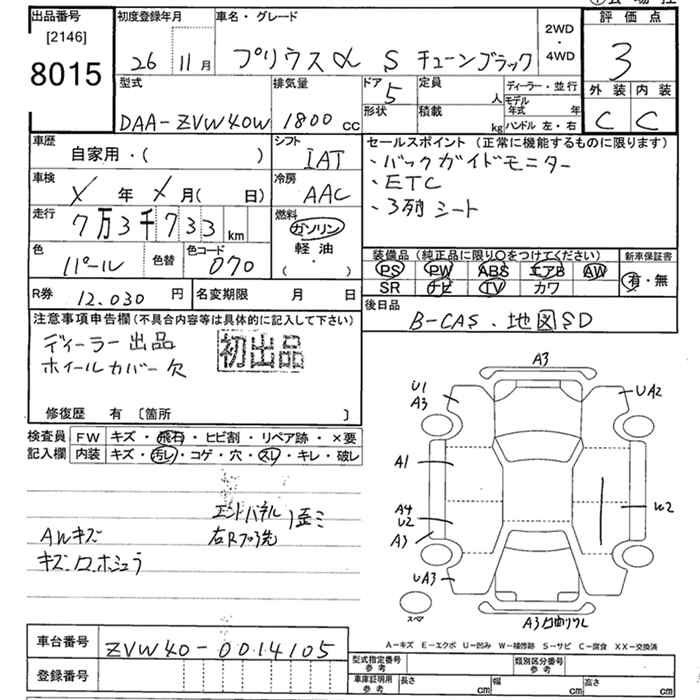 出品番号 初度登録年月 車名・グレード 評価点
[2146] 2WD
8015 26 11月 プリウスα S チューンブラック ・ 3
4WD
型式 排気量 ドア 5 定員 人 ディーラー・並行 外装 内装
DAA-ZVW40W 1800cc 形状 積載 kg モデル年式 年 C C
ハンドル 左・右
車歴 シフト セールスポイント(正常に機能するものに限ります)
自家用・( ) IAT ・バックガイドモニター
車検 冷房 ・ETC
X年 X月( 日) AAC ・3列シート
走行 燃料
7万3千733km ガソリン
色 色替 色コード 軽油 装備品(純正品に限り○をつけてください) 新車保証書
パール 070 ・( ) PS PW ABS エアB AW 有・無
SR ナビ TV カワ
R券 12,030円 名変期限 月 日 後日品
注意事項申告欄(不具合内容等は具体的に記入して下さい) B-CAS、地図SD
ディーラー出品 初出品
ホイールカバー欠
修復歴 有 〔箇所 〕
検査員 FW キズ・飛石・ヒビ割・リペア跡・×要
記入欄 内装 キズ・汚レ・コゲ・穴・スレ・キレ・破レ
エンドパネル歪ミ
AWキズ
A3
U1
A3
UA2
A1
A4
U2
A3
U2
UA3
スペア
A-キズ E-エクボ U-凹み W-補修跡 S-サビ C-腐食 XX-交換済
車台番号 ZVW40-0014105
型式指定番号 参考 類別区分番号 参考
登録番号 車庫証明用 参考 長さ cm 幅 cm 高さ cm